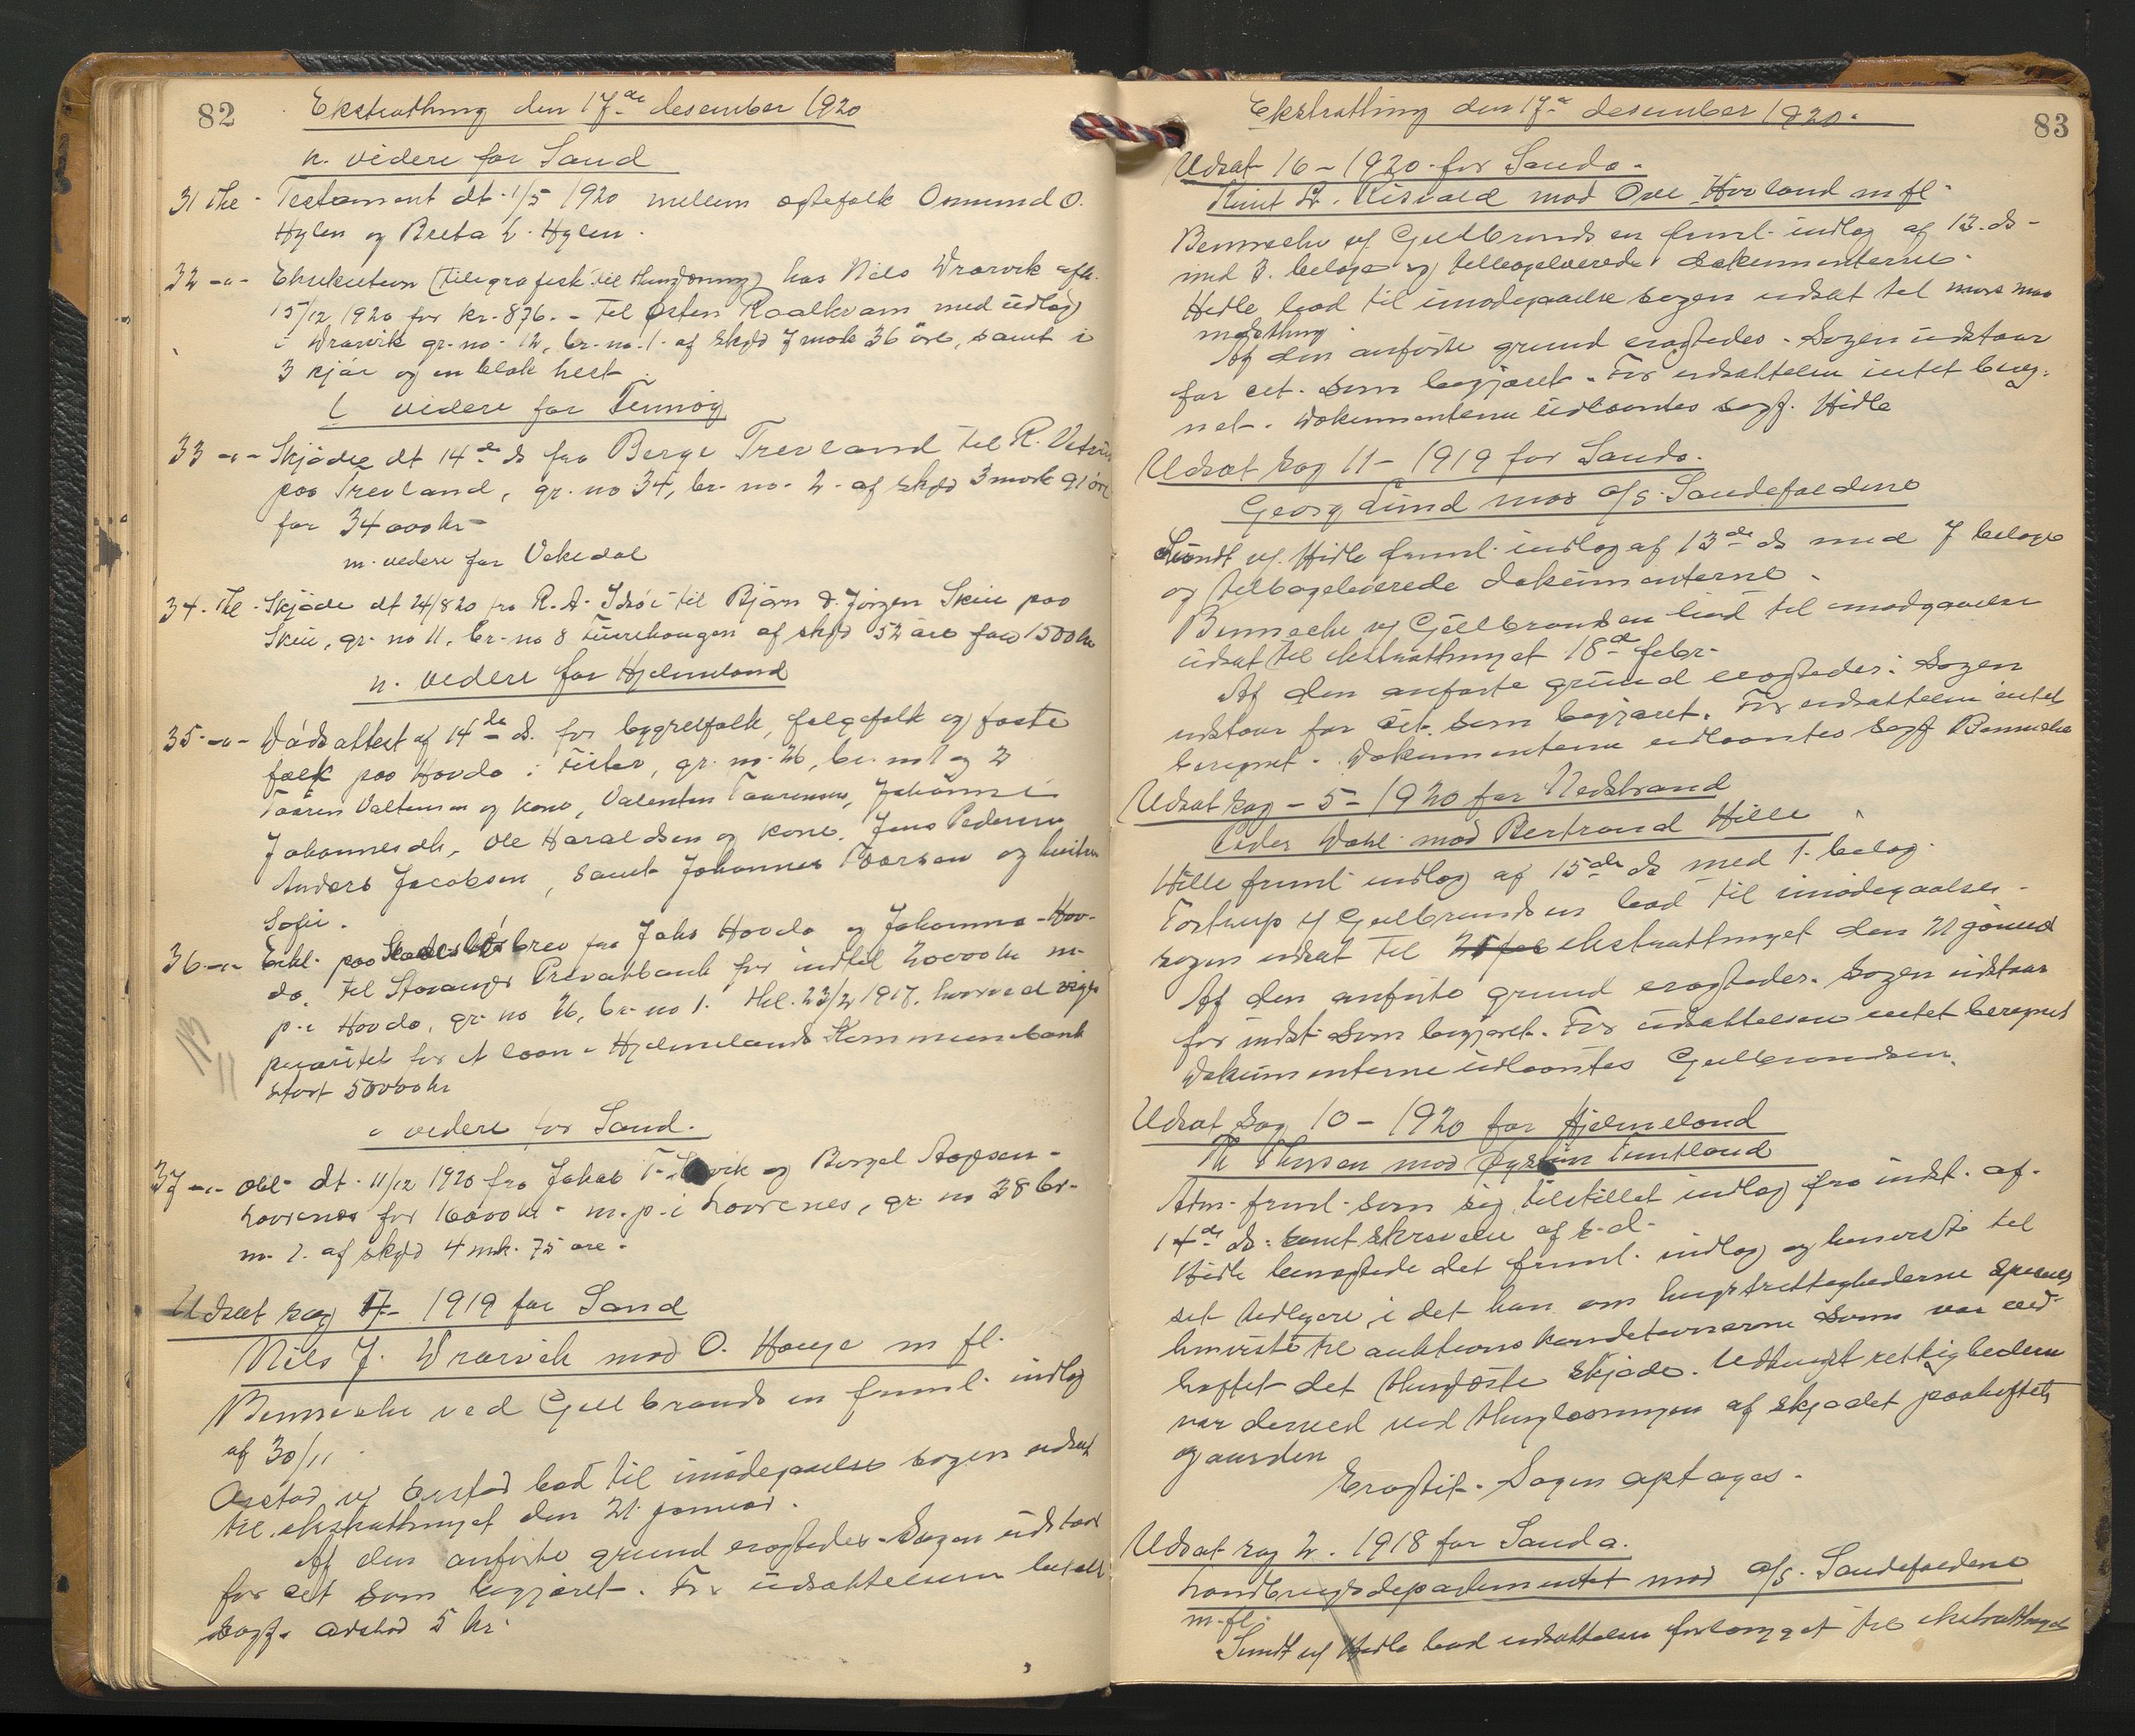 82
Ekstrathing den 17de desember 1920
n. videre for Sand
31 the - Testament dt. 1/5 1920 mellem egtefolk Osmund O.
Hylen og Breta L. Hylen.
32 -"- Ekskution (telegrafisk til thinglæsning) hos Nils Vrarvik afh.
15/12 1920 for kr. 876.- til Østen Raalkvam med udlæg
i Vrarvik gr. no. 12, br. no. 1. af skyld 7 mark 36 øre, samt i
3 kjør og en blak hest.
videre for
33 -"- Skjøde dt 14de ds fra Berge Trevland til R.
paa Trevland, gr. no 34, br. no. 2. af skyld 3 mark 91 øre
for 34000 kr
m. videre for Vikedal
34. the - Skjøde dt 24/8 20 fra R. A. til Bjørn & Jørgen Skeie paa
Skeie, gr. no 11, br. no 8 af skyld 52 øre for 1500 kr
n. videre for Hjelmeland
35 -"- Vadsattest af 14de ds. for bygselfolk, følgefolk og faste
folk paa Hovda i Fister, gr. no. 26, br. no 1 og 2
og kone, Valentin Johanne
Johannesdtr, Ole Haraldsen og kone, Jens Pedersen
Anders Jacobsen, samt Johannes og
Sofie.
36 -"- Erkl. paa brev fra Johs Hovda og Johanna Hov-
da til Stavanger Privatbank for indtil 20000 kr m.
p. i Hovda, gr. no 26, br. no 1. thl. 23/2 1917. hvorved viger
prioritet for et laan i Hjelmelands Kommunebank
stort 50000 kr
" videre for Sand.
37 -"- Obl. dt. 11/12 1920 fra Jakob T. og
Lovrenes for 16000 kr - m. p. i Lovrenes, gr. no 38 br.
no. 1. af skyld 4 mrk. 75 øre.
Udsat sag 17- 1919 for Sand
Nils J. Vrarvik mod O. Hauge m fl.
Benneche ved Gulbrandsen freml. indlæg
af 30/11
Arstad v/ bad til imødegaaelse sagen udsat
til ekstrathinget den 21. januar.
Af den anførte grund eragtedes. Sagen udstaar
for det som begjæret. For udsættelsen betalt
sagf. Arstad 5 kr.
83
Ekstrathing den 17de desember 1920.
Udsat 16 - 1920 for Sauda.
Knut L. Risvold mod Ove Hovland m fl.
Benneche v/ Gulbrandsen freml. indlæg af 13. ds -
med 3. belage og tilbageleverede dokumenterne.
Hidle bad til imødegaaelse sagen udsat til mars maa
nedsthing
Af den anførte grund eragtedes. Sagen udstaar
for det som begjæret. For udsættelsen intet bereg-
net. Dokumenterne udlaantes sagf. Hidle
Udsat sag 11 - 1919 for Sauda.
Georg Lund mod A/S. Saudefaldene
Sundt v/ Hidle freml. indlæg af 13de ds med 7 belage
og tilbageleverede dokumenterne.
Benneche v/ Gulbrandsen bad til imødegaaelse
udsat til ekstrathinget 18de febr.
Af den anførte grund eragtedes: Sagen
udstaar for det som begjæret. For udsættelsen intet
beregnet. Dokumenterne udlaantes sagf Bennecke
Udsat sag - 5 - 1920 for Nedstrand
Peder Dahl mod Bertrand Hille
Hille freml. indlæg af 15de ds med 1. belag.
Tostrup v/ Gulbrandsen bad til imødegaaelse
sagen udsat til ekstrathinget den 21 januar
Af den anførte grund eragtedes. Sagen udstaar
for indst. som begjæret. For udsættelsen intet beregnet
Dokumenterne udlaantes Gulbrandsen.
Udsat sag 10 - 1920 for Hjelmeland
Th. Thorsen mod Øystein
Adm. freml. som sig tilstillet indlæg fra indst. af
14de ds. samt skrivelse af s. d.
Hidle benegtede det freml. indlæg og henviste til
sit tidligere, i det han om hugstrettighederne specielt
henviste til auktionskonditionerne som var ved-
heftet det thinglæste skjøde. Udhugst rettigheden
var dermed ved thinglæsningen af skjødet paaheftet
gaarden
Eragtet. Sagen optages.
Udsat sag 2. 1918 for Sauda.
Landbrugsdepartementet mod A/S. Saudefaldene
m. fl.
Sundt v/ Hidle bad udsættelsen forlænget til ekstrathinget